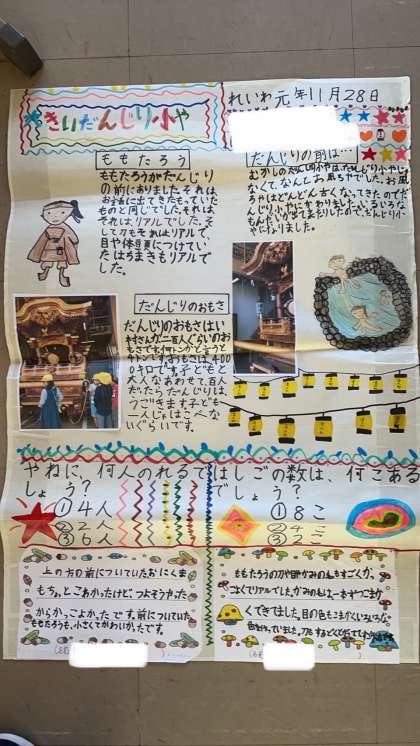 れいわ元年11月28日
きしだんじり小や
ももたろう
ももたろうがだんじり
の前にありました。それは、
お話に出てきたもっていた
ものと同じでした。それは、
それはリアルでした。そ
して刀もそれはリアルで、
目や体
につけてい
たはちまきもリアルで
した。
だんじりの前は…
むかしの
小やは、
小やじゃ
なくて、なんとお風ろやでした。お風
ろやはどんどん古くなってきたのでだ
んじり小やにかわりました。いろいろな
だんじり小
やになりました。
だんじりのおもさ
だんじりのおもさはい
村さんが二百人ぐらいのお
もさです。
と言うと
おもさは400
0キロです。子どもと
大人をあわせて、百人
だったらだんじりは、
うごきます。子ども
人じゃはこべな
いぐらいです。
やねに、何人のれるで
しょう?
①4人
②2人
③6人
はしごの数は、何こある
でしょう?
①8こ
②4こ
③2こ
上の方の前についていたおにくま
もち。とこわかったけど、つよそうやった
からかっこよかったです。前についていた
ももたろうも、小さくてかわいかったです。
ももたろうの刀や
かみの毛もすごくか。
こよくてリアルでした。かみの毛は一本ずつこまか
くてきてました。目の色もこまかくいろいろな
色をぬっていました。刀も